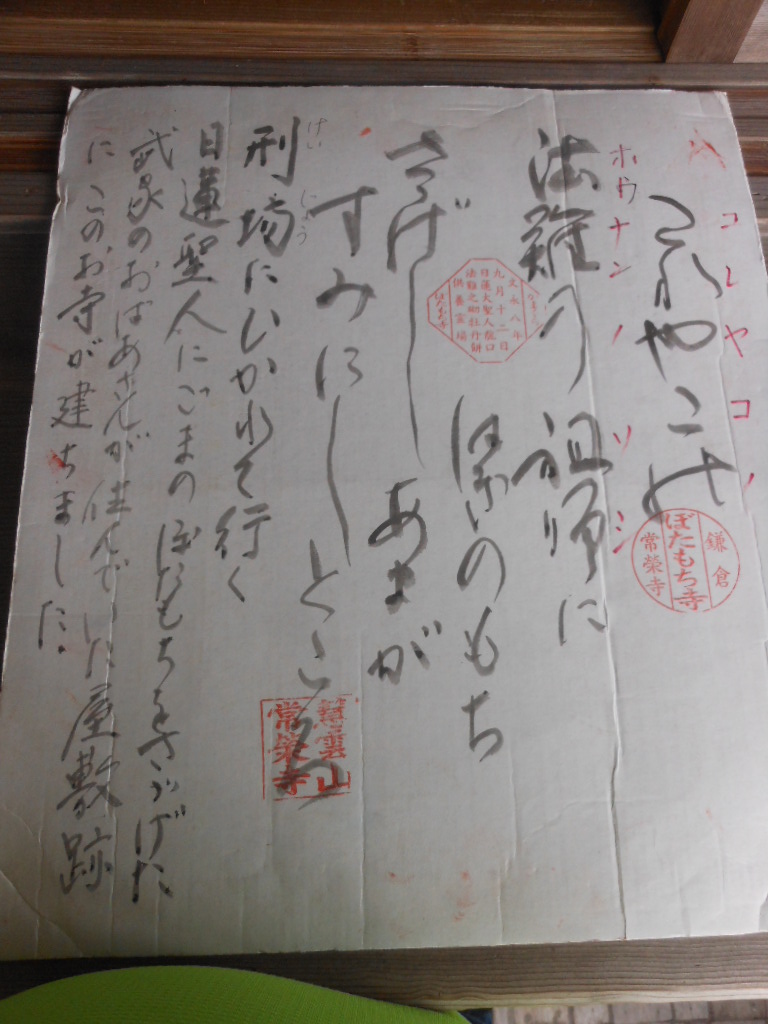 コレヤコノ
これやこの
鎌倉
ぼたもち寺
常榮寺
ホウナンノ ソシ
法難の祖師に
はぎのもち
文永八年
九月十二日
日蓮大聖人龍口
法難之砌牡丹餅
供養霊場
さゝげし あまが
すみにし ところ
慧雲山
常榮寺
けい じょう
刑場にひかれて行く
日蓮聖人にごまのぼたもちをさゝげた
武家のおばあさんが住んでいた屋敷跡
に このお寺が建ちました.